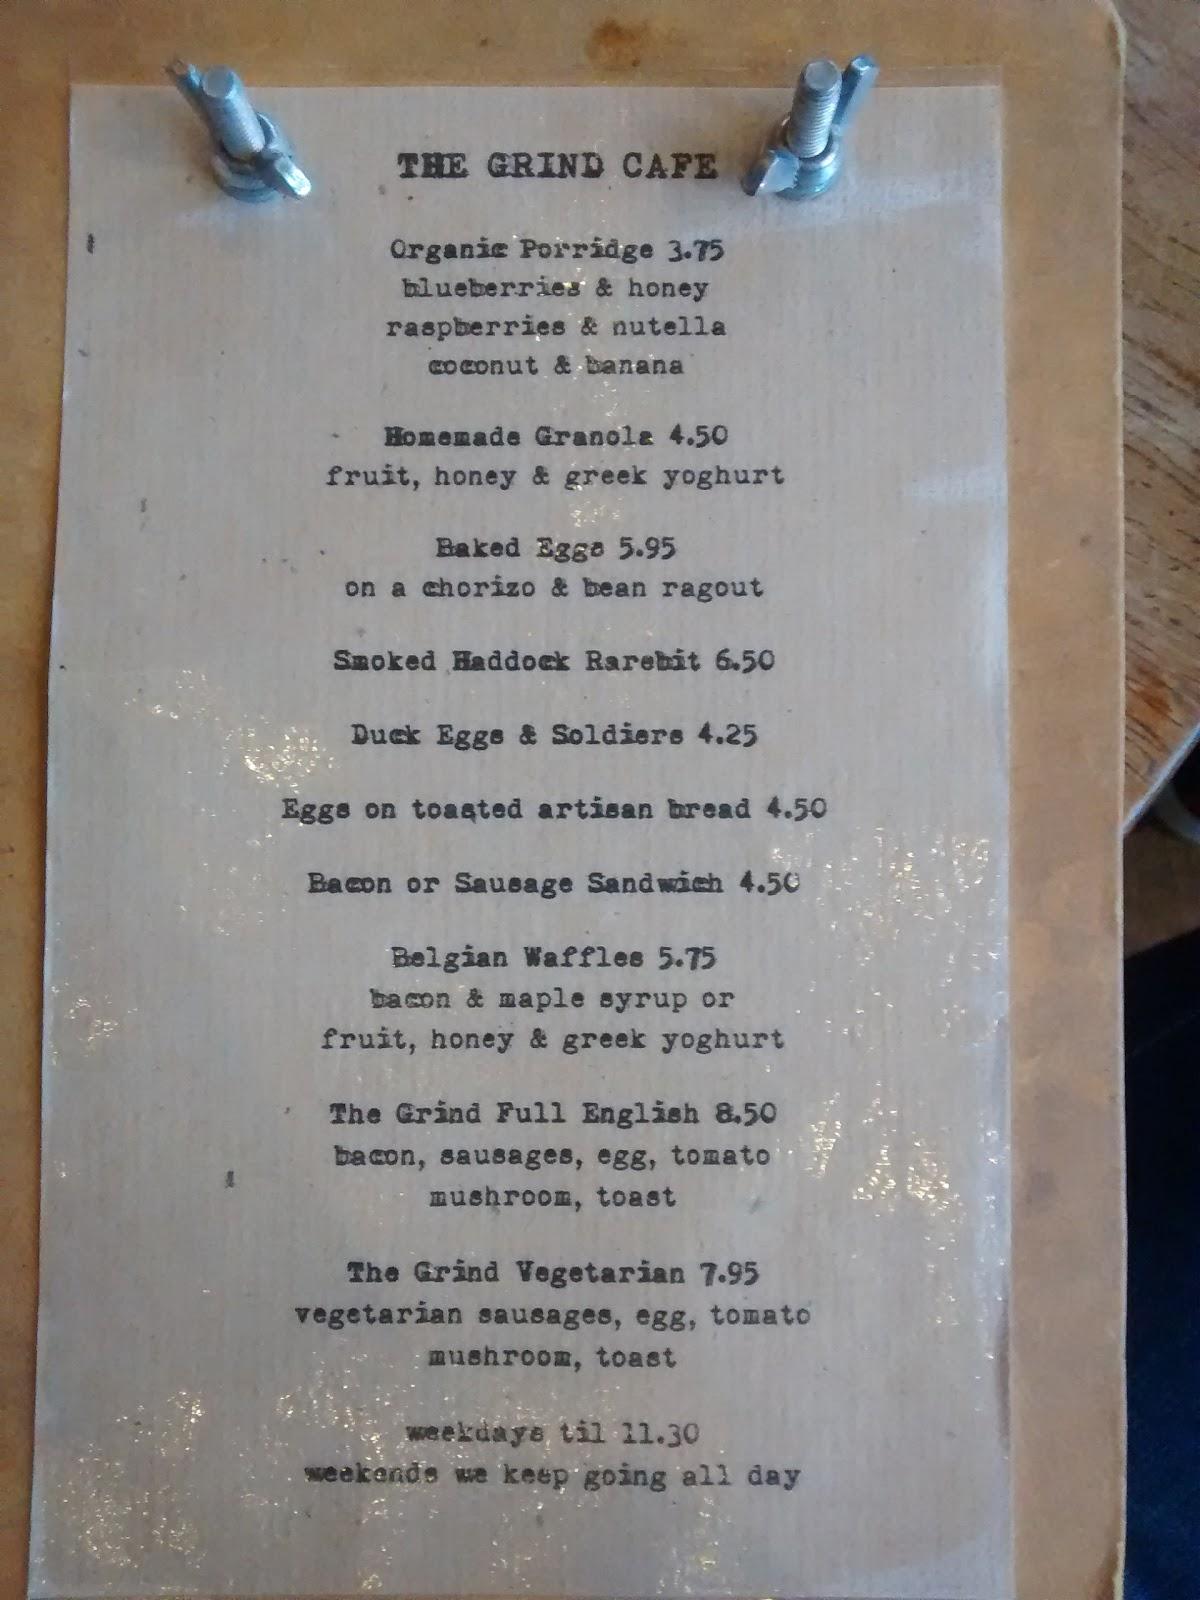 THE GRIND CAFE
Organic Porridge 3.75
blueberries & honey
raspberries & nutella
coconut & banana
Homemade Granola 4.50
fruit, honey & greek yoghurt
Baked Eggs 5.95
on a chorizo & bean ragout
Smoked Haddock Rarebit 6.50
Duck Eggs & Soldiers 4.25
Eggs on toasted artisan bread 4.50
Bacon or Sausage Sandwich 4.50
Belgian Waffles 5.75
bacon & maple syrup or
fruit, honey & greek yoghurt
The Grind Full English 8.50
bacon, sausages, egg, tomato
mushroom, toast
The Grind Vegetarian 7.95
vegetarian sausages, egg, tomato
mushroom, toast
weekdays til 11.30
weekends we keep going all day